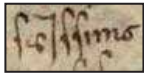 ſc̄iſſims